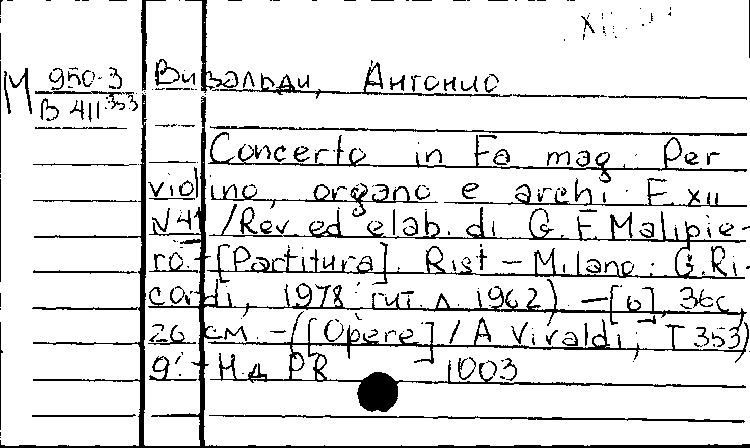 М 950-3 Вивальди, Антонио
В 411 353
Concerto in Fa mag. Per
violino, organo e archi F. XII
N 41 / Rev. ed elab. di G. F. Malipie-
ro. - [Partitura]. Rist - Milano: G. Ri-
cordi, 1978 (тит. л. 1962) - [6], 36с,
26 см. - ([Opere] / A Vivaldi; T 353)
9: - Н. д. PR 1003